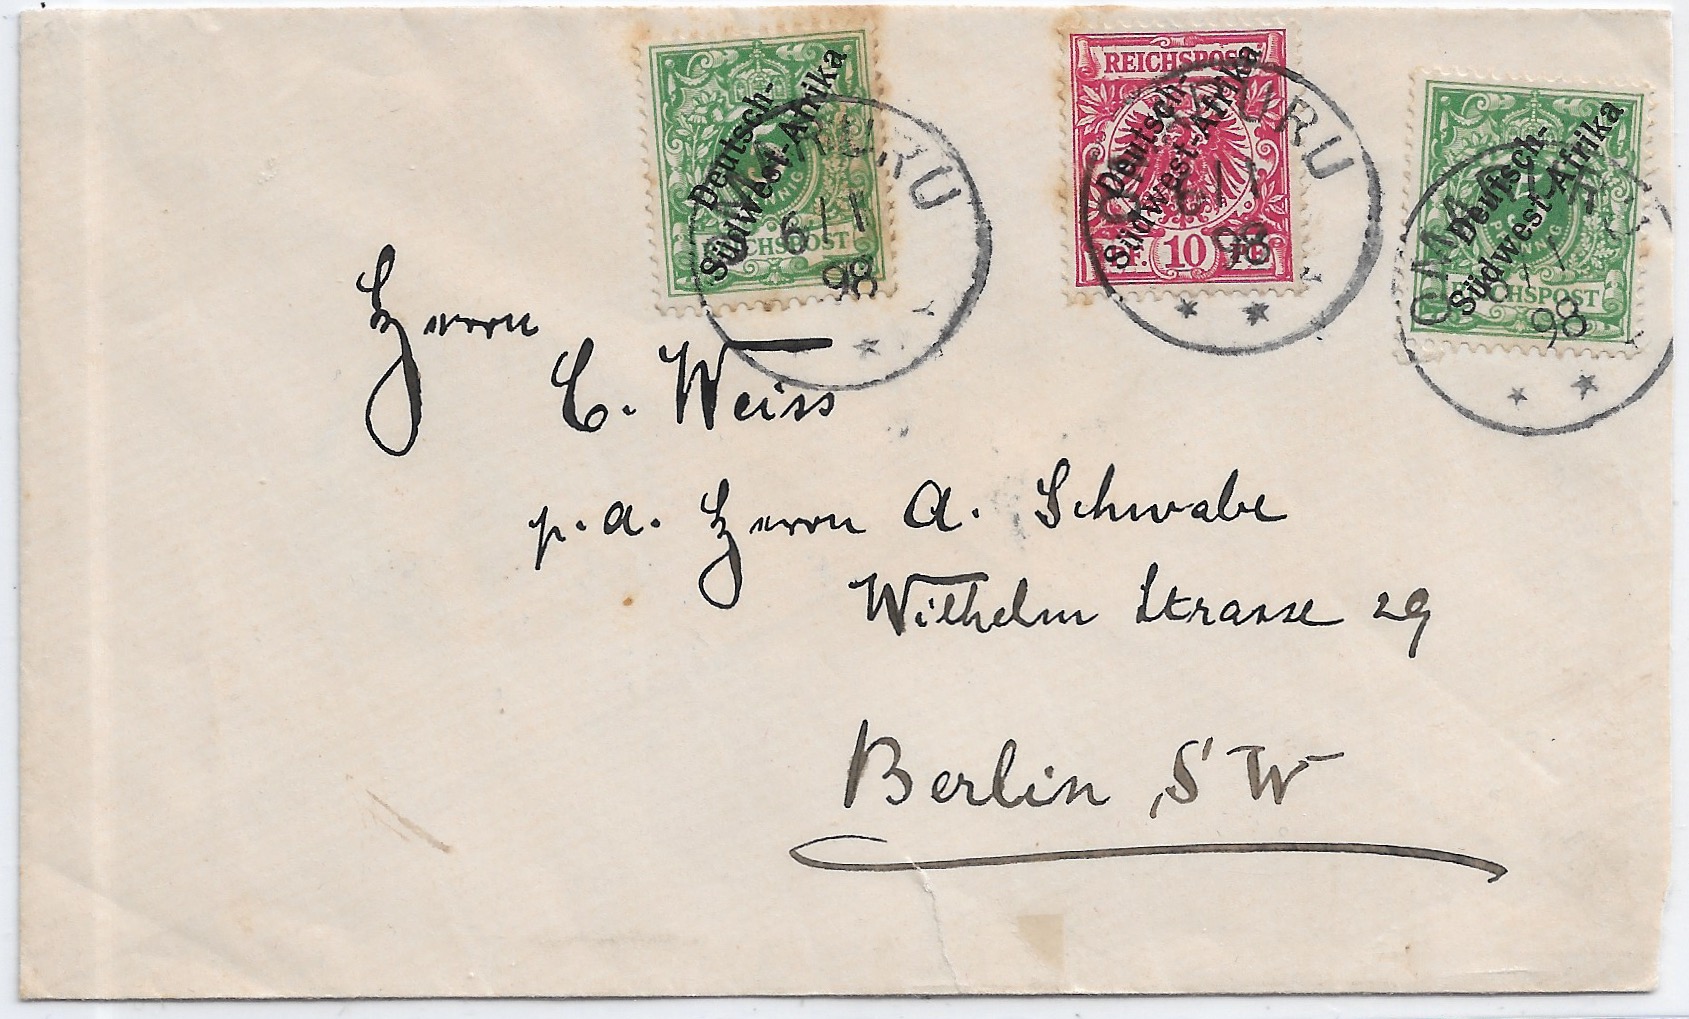 Deutsch-
Südwest-Afrika
PFENNIG
REICHSPOST
OMARURU
6/11
98
REICHSPOST
Deutsch-
Südwest-Afrika
10
OMARURU
6/11
98
Deutsch-
Südwest-Afrika
PFENNIG
REICHSPOST
OMARURU
6/11
98
Herrn
C. Weiss
p. a. Herrn A. Schwabe
Wilhelm Strasse 29
Berlin SW